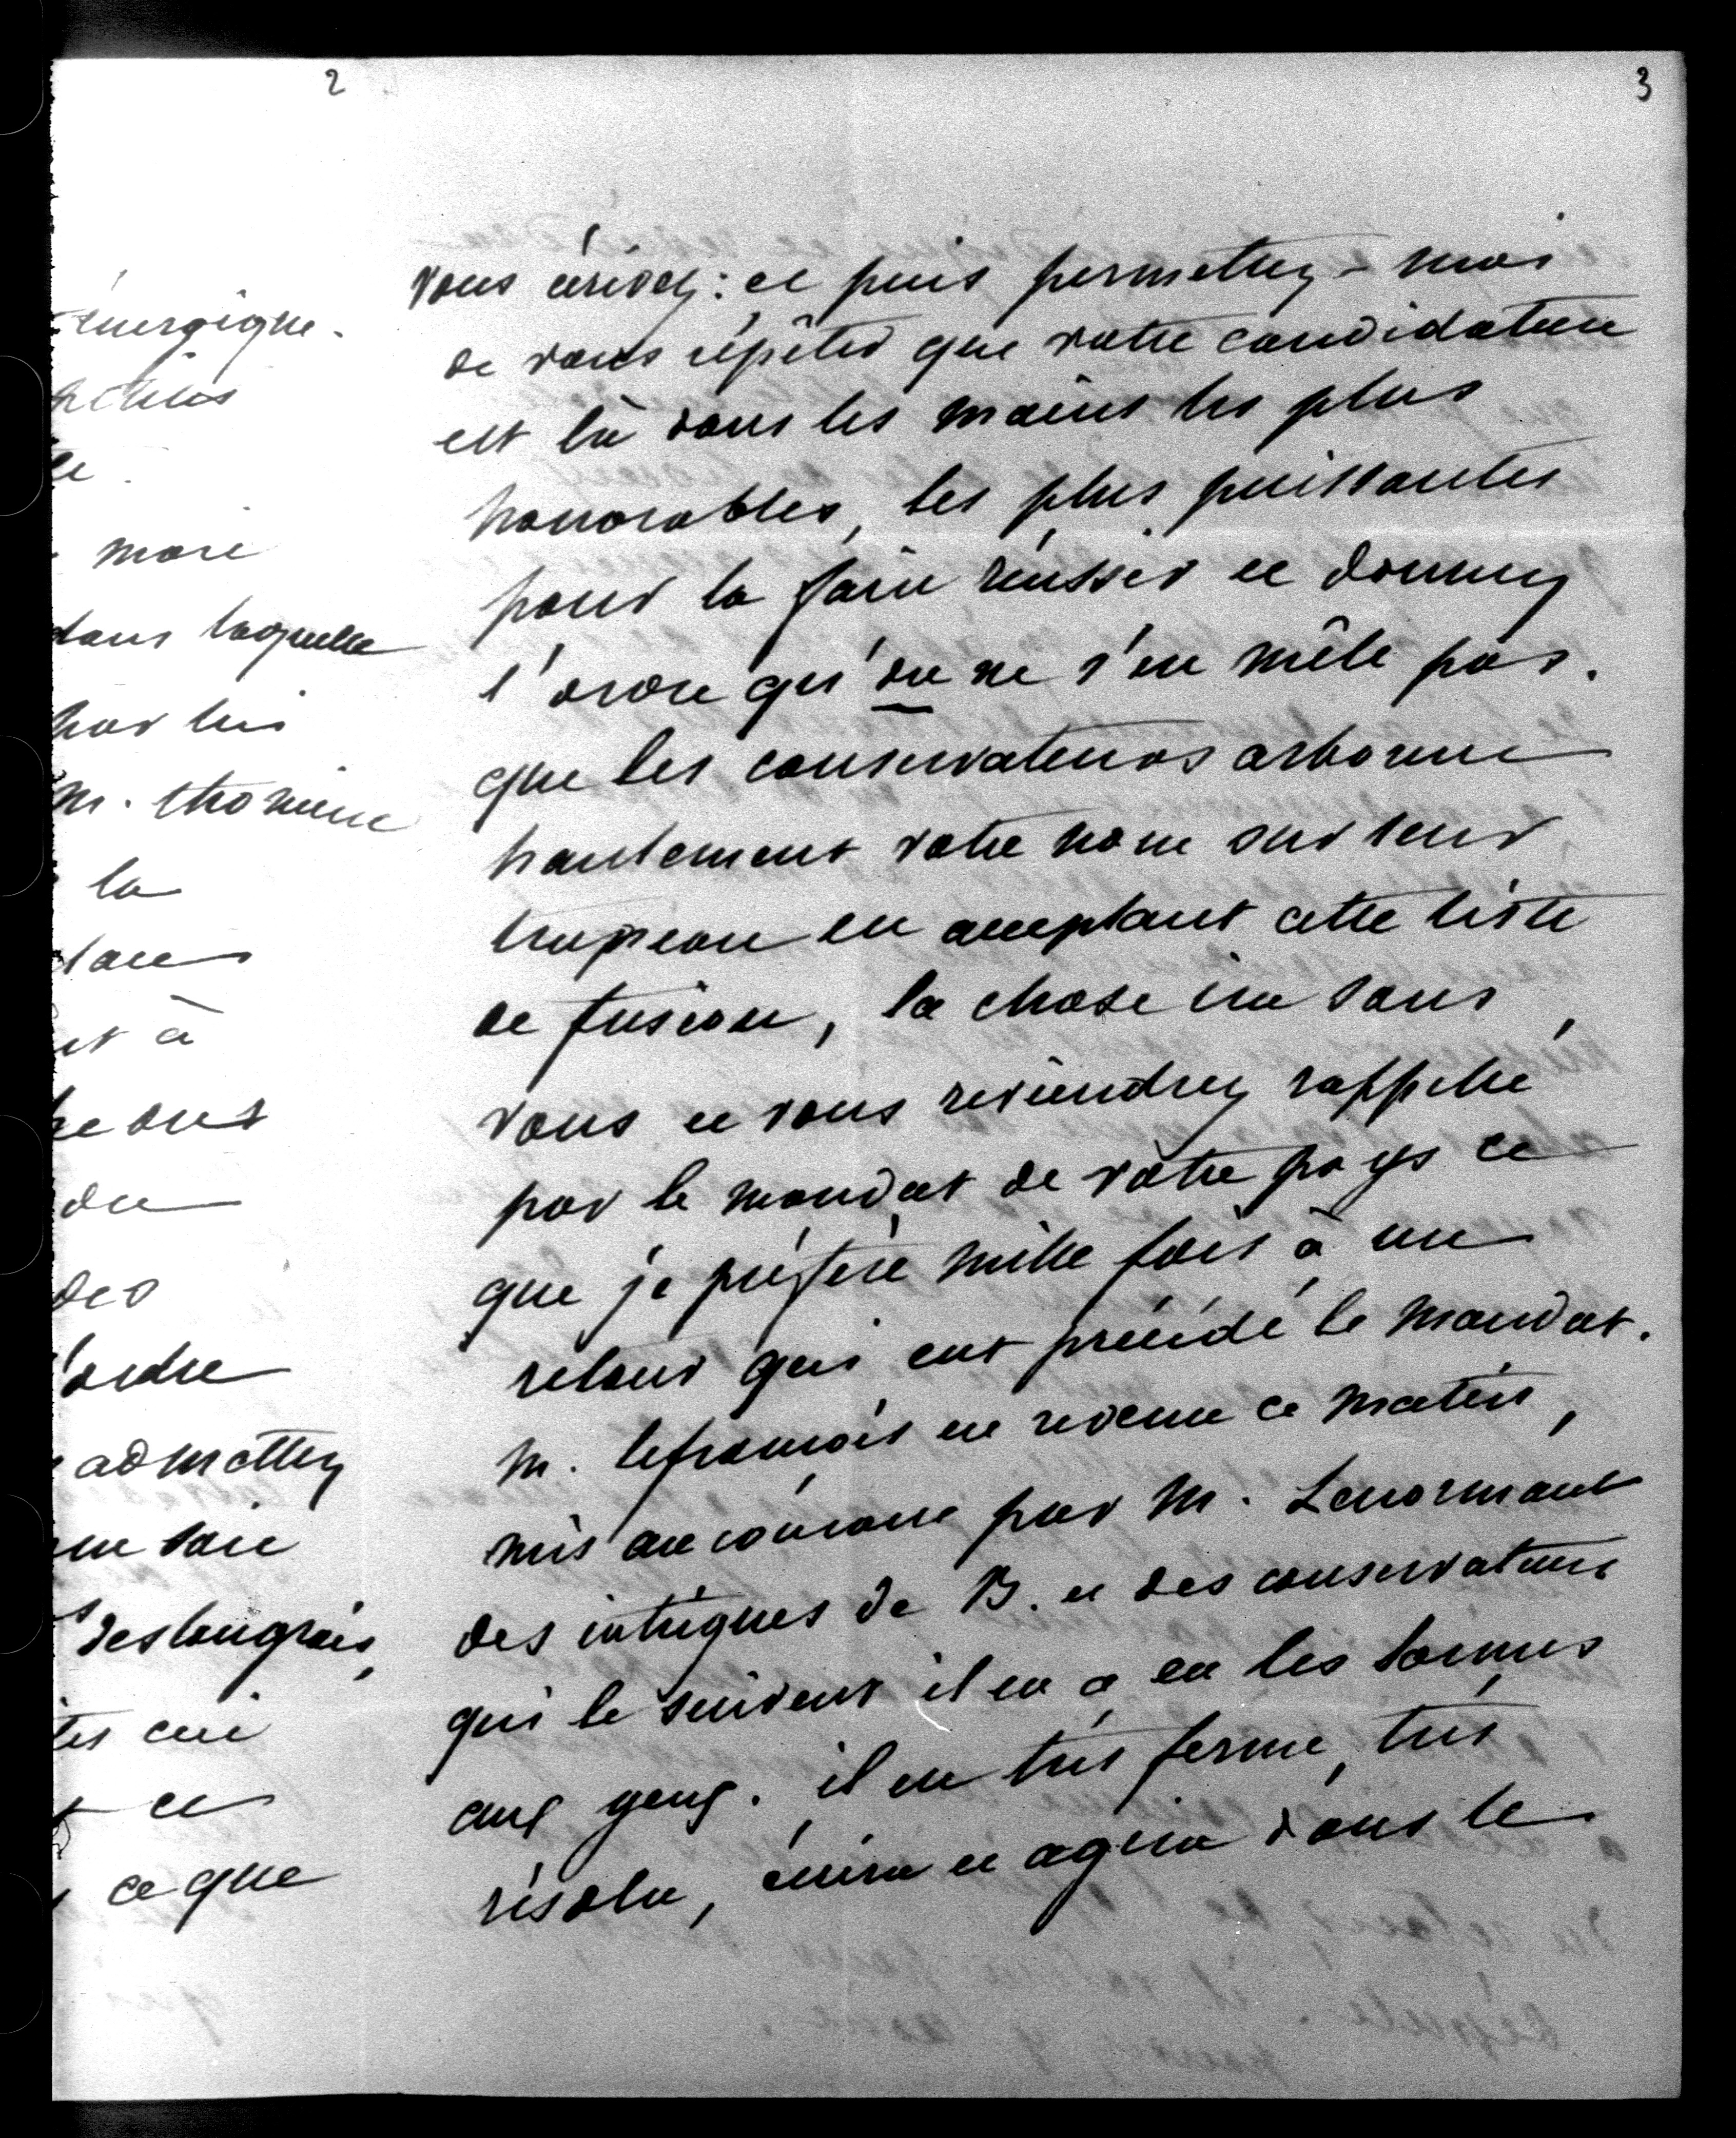 2
energique.
le
mari
dans laquelle
par lui
m. thomine
la
dans
et à
de
des
l'ordre
admettez
une soie
deslongrais,
tes
et
ce que
3
vous écrivez : et puis permettez-moi
de vous répéter que votre candidature
est là dans les mains les plus
honorables, les plus puissantes
pour la faire réussir et donnez
l'ordre qu'on ne s'en mêle pas.
que les conservateurs arborent
hautement votre nom sur leur
drapeau en acceptant cette liste
de fusion, la chose ira sans
vous et vous reviendrez rappelé
par le mandat de votre pays ce
que je préfère mille fois à un
retour qui eut précédé le mandat.
m. lefrançois est revenu ce matin,
mis au courant par M. Lenormant
des intrigues de B. et des conservateurs
qui le suivent il en a eu les larmes
aux yeux. il est très ferme, très
résolu, écrira et agira dans le